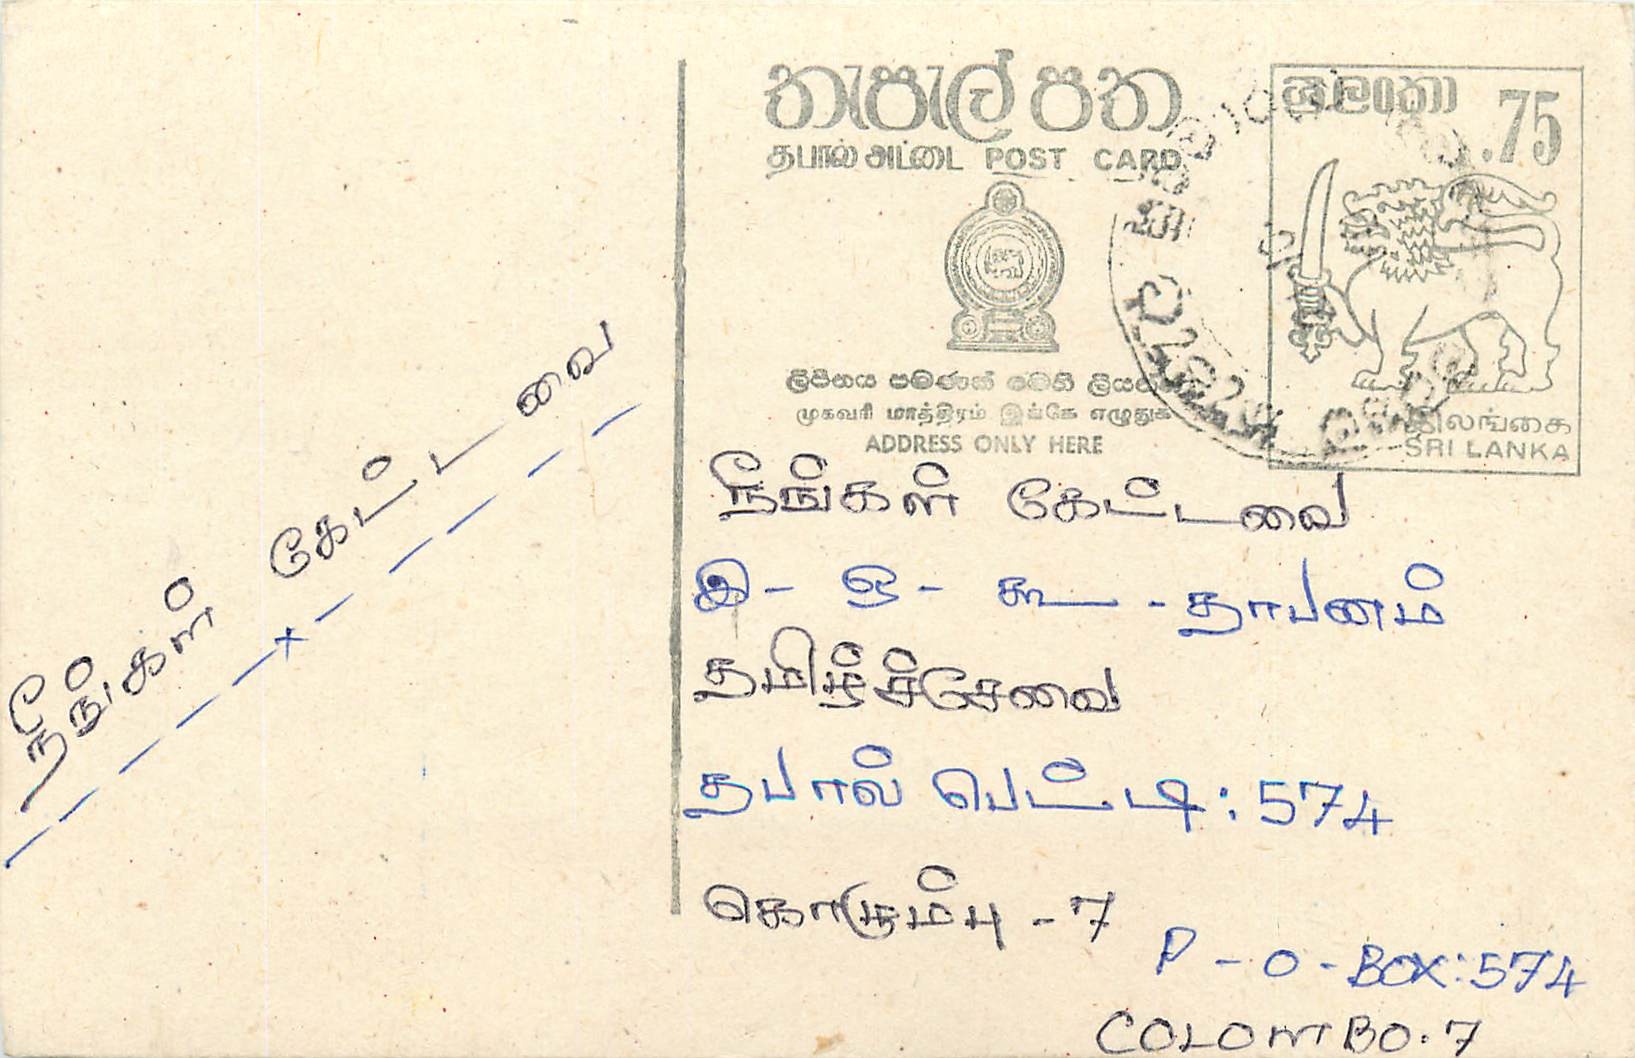 තැපැල් පත
தபால் அட்டை POST CARD
ශ්‍රී ලංකා .75
ලිපිනය පමණක් මෙහි
முகவரி மாத்திரம் இங்கே எழுதுக
ADDRESS ONLY HERE
இலங்கை
SRI LANKA
நீங்கள் கேட்டவை
நீங்கள் கேட்டவை
இ - ஒ - கூ - தாபனம்
தமிழ்ச்சேவை
தபால் பெட்டி : 574
கொழும்பு - 7
P - O - BOX: 574
COLOMBO. 7